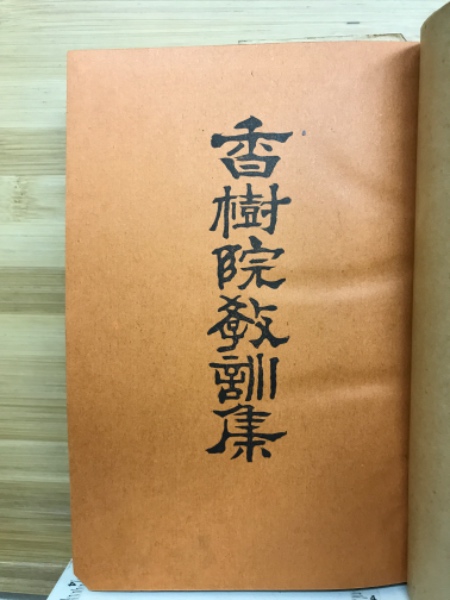 香樹院教訓集